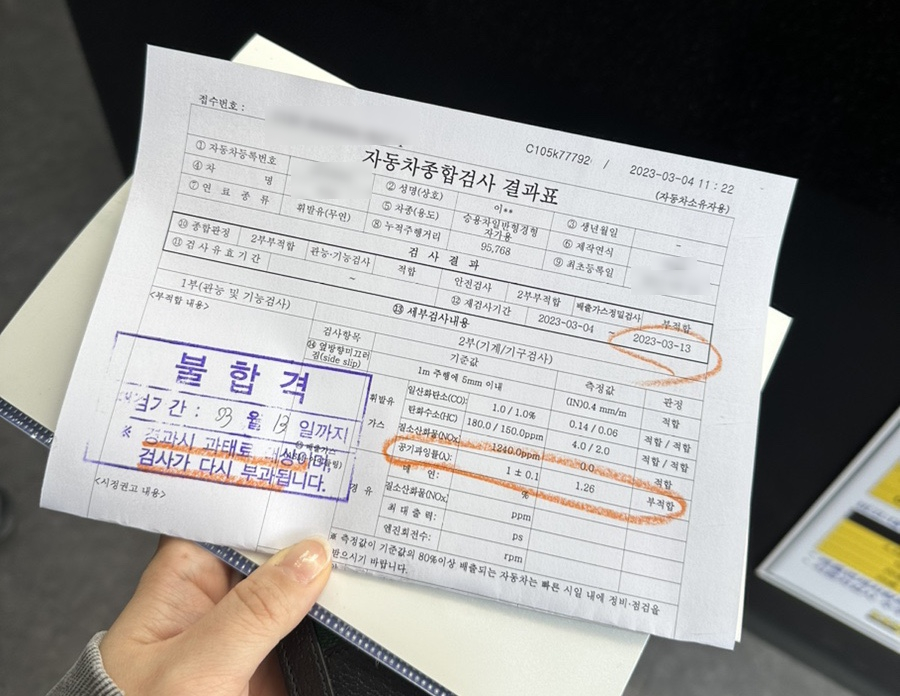 접수번호 :
C105k77792 / 2023-03-04 11 : 22
자동차종합검사 결과표
(자동차소유자용)
① 자동차등록번호 ② 성명(상호) 이** ③ 생년월일 -
④ 차 명 ⑤ 차종(용도) 승용차일반형경형 자가용 ⑥ 제작연식
⑦ 연 료 종 류 휘발유(무연) ⑧ 누적주행거리 95,768 ⑨ 최초등록일
검 사 결 과
⑩ 종합판정 2부부적합 관능·기능검사 적합 안진검사 2부부적합 배출가스정밀검사 부적합
⑪ 검 사 유 효 기 간 ~ ⑫ 재검사기간 2023-03-04 ~ 2023-03-13
⑬ 세부검사내용
1부(관능 및 기능검사) 2부(기계/기구검사)
<부적합 내용> 검사항목 기준값 측정값 판정
⑭ (side slip) 1m 주행에 5mm 이내 (IN)0.4 mm/m 적합
휘발유 일산화탄소(CO): 1.0 / 1.0% 0.14 / 0.06 적합 / 적합
가스 탄화수소(HC) 180.0 / 150.0ppm 4.0 / 2.0 적합 / 적합
질소산화물(NOx) 1240.0ppm 0.0 적합
공기과잉률(λ): 1 ± 0.1 1.26 부적합
경 유 매 연: %
질소산화물(NOx) ppm
최 대 출 력: ps
엔진회전수: rpm
불 합 격
기 간 : 03 월 13 일까지
※ 경과시 과태료
검사가 다시 부과됩니다.
<시정권고 내용>
※ 측정값이 기준값의 80%이상 배출되는 자동차는 빠른 시일 내에 정비·점검을
받으시기 바랍니다.